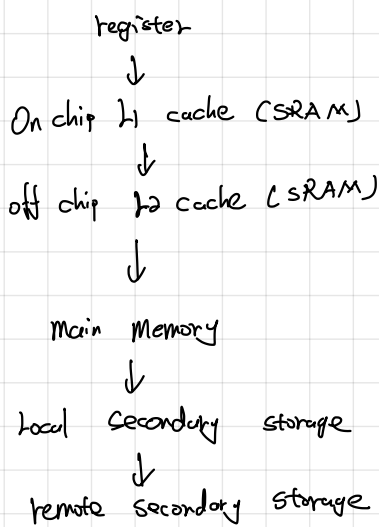 register
On chip L1 cache (SRAM)
off chip L2 cache (SRAM)
main Memory
Local secondary storage
remote secondary storage